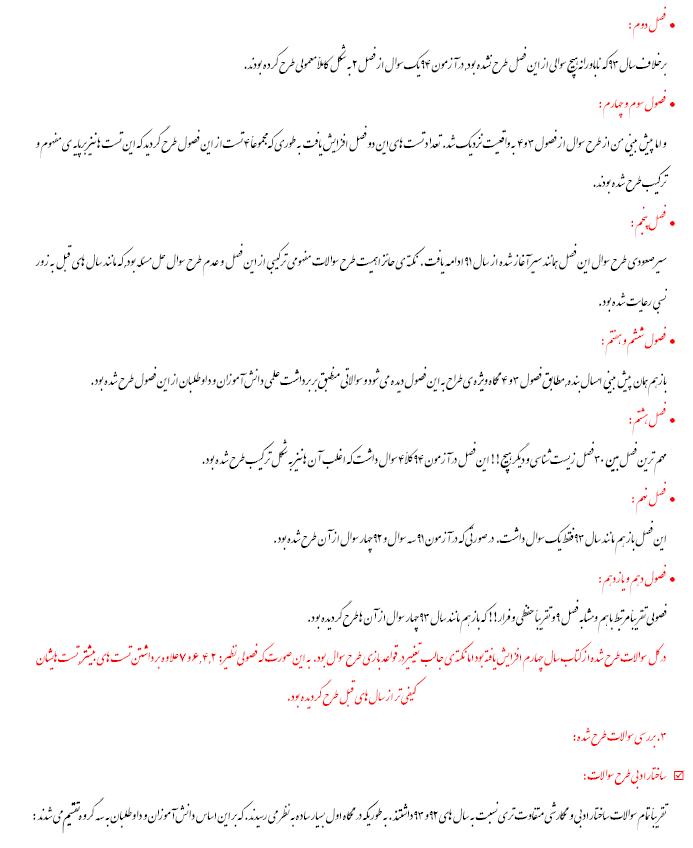 • فصل دوم :
برخلاف سال ۹۳ که ناباورانه هیچ سوالی از این فصل طرح نشده بود، در آزمون ۹۴ یک سوال از فصل ۲ به شکل کاملاً معمولی طرح کرده بودند.
• فصول سوم و چهارم :
و اما پیش بینی من از طرح سوال از فصول ۳ و ۴ به واقعیت نزدیک شد. تعداد تست های این دو فصل افزایش یافت به طوری که مجموعاً ۴ تست از این فصول طرح گردید که این تست ها نیز بر پایه ی مفهوم و
ترکیب طرح شده بودند.
• فصل پنجم :
سیر صعودی طرح سوال این فصل همانند سیر آغاز شده از سال ۹۱ ادامه یافت . نکته ی حائز اهمیت طرح سوالات مفهومی ترکیبی از این فصل و عدم طرح سوال حل مسئله بود، که مانند سال های قبل به زور
نسبی رعایت شده بود .
• فصول ششم و هفتم :
باز هم همان پیش بینی امسال بنده، مطابق فصول ۳ و ۴ نگاه ویژه ی طراح به این فصول دیده می شود و سوالاتی منطبق بر برداشت علمی دانش آموزان و داوطلبان از این فصول طرح شده بود.
• فصل هشتم :
مهم ترین فصل بین ۳۰ فصل زیست شناسی و دیگر هیچ!! این فصل در آزمون ۹۴ کلاً ۴ سوال داشت که اغلب آن ها نیز به شکل ترکیب طرح شده بود.
• فصل نهم :
این فصل باز هم مانند سال ۹۳ فقط یک سوال داشت. در صورتی که در آزمون ۹۱ سه سوال و ۹۲ چهار سوال از آن طرح شده بود .
• فصول دهم و یازدهم :
فصولی تقریباً مرتبط با هم و مشابه فصل ۹ و تقریباً حفظی و فرار!! که باز هم مانند سال ۹۳ چهار سوال از آن ها طرح گردیده بود.
در کل سوالات طرح شده از کتاب سال چهارم افزایش یافته بود اما نکته ی جالب تغییر در قواعد بازی طرح سوال بود. به این صورت که فصولی نظیر: ۲، ۴، ۶ و ۷ علاوه بر داشتن تست های بیشتر، تست هایشان
کیفی تر از سال های قبل طرح گردیده بود.
۳. بررسی سوالات طرح شده :
☑ ساختار ادبی طرح سوالات :
تقریباً تمام سوالات ساختار ادبی و نگارشی متفاوت تری نسبت به سال های ۹۲ و ۹۳ داشتند . به طوریکه در نگاه اول بسیار ساده به نظر می رسیدند. که بر این اساس دانش آموزان و داوطلبان به سه گروه تقسیم می شدند :